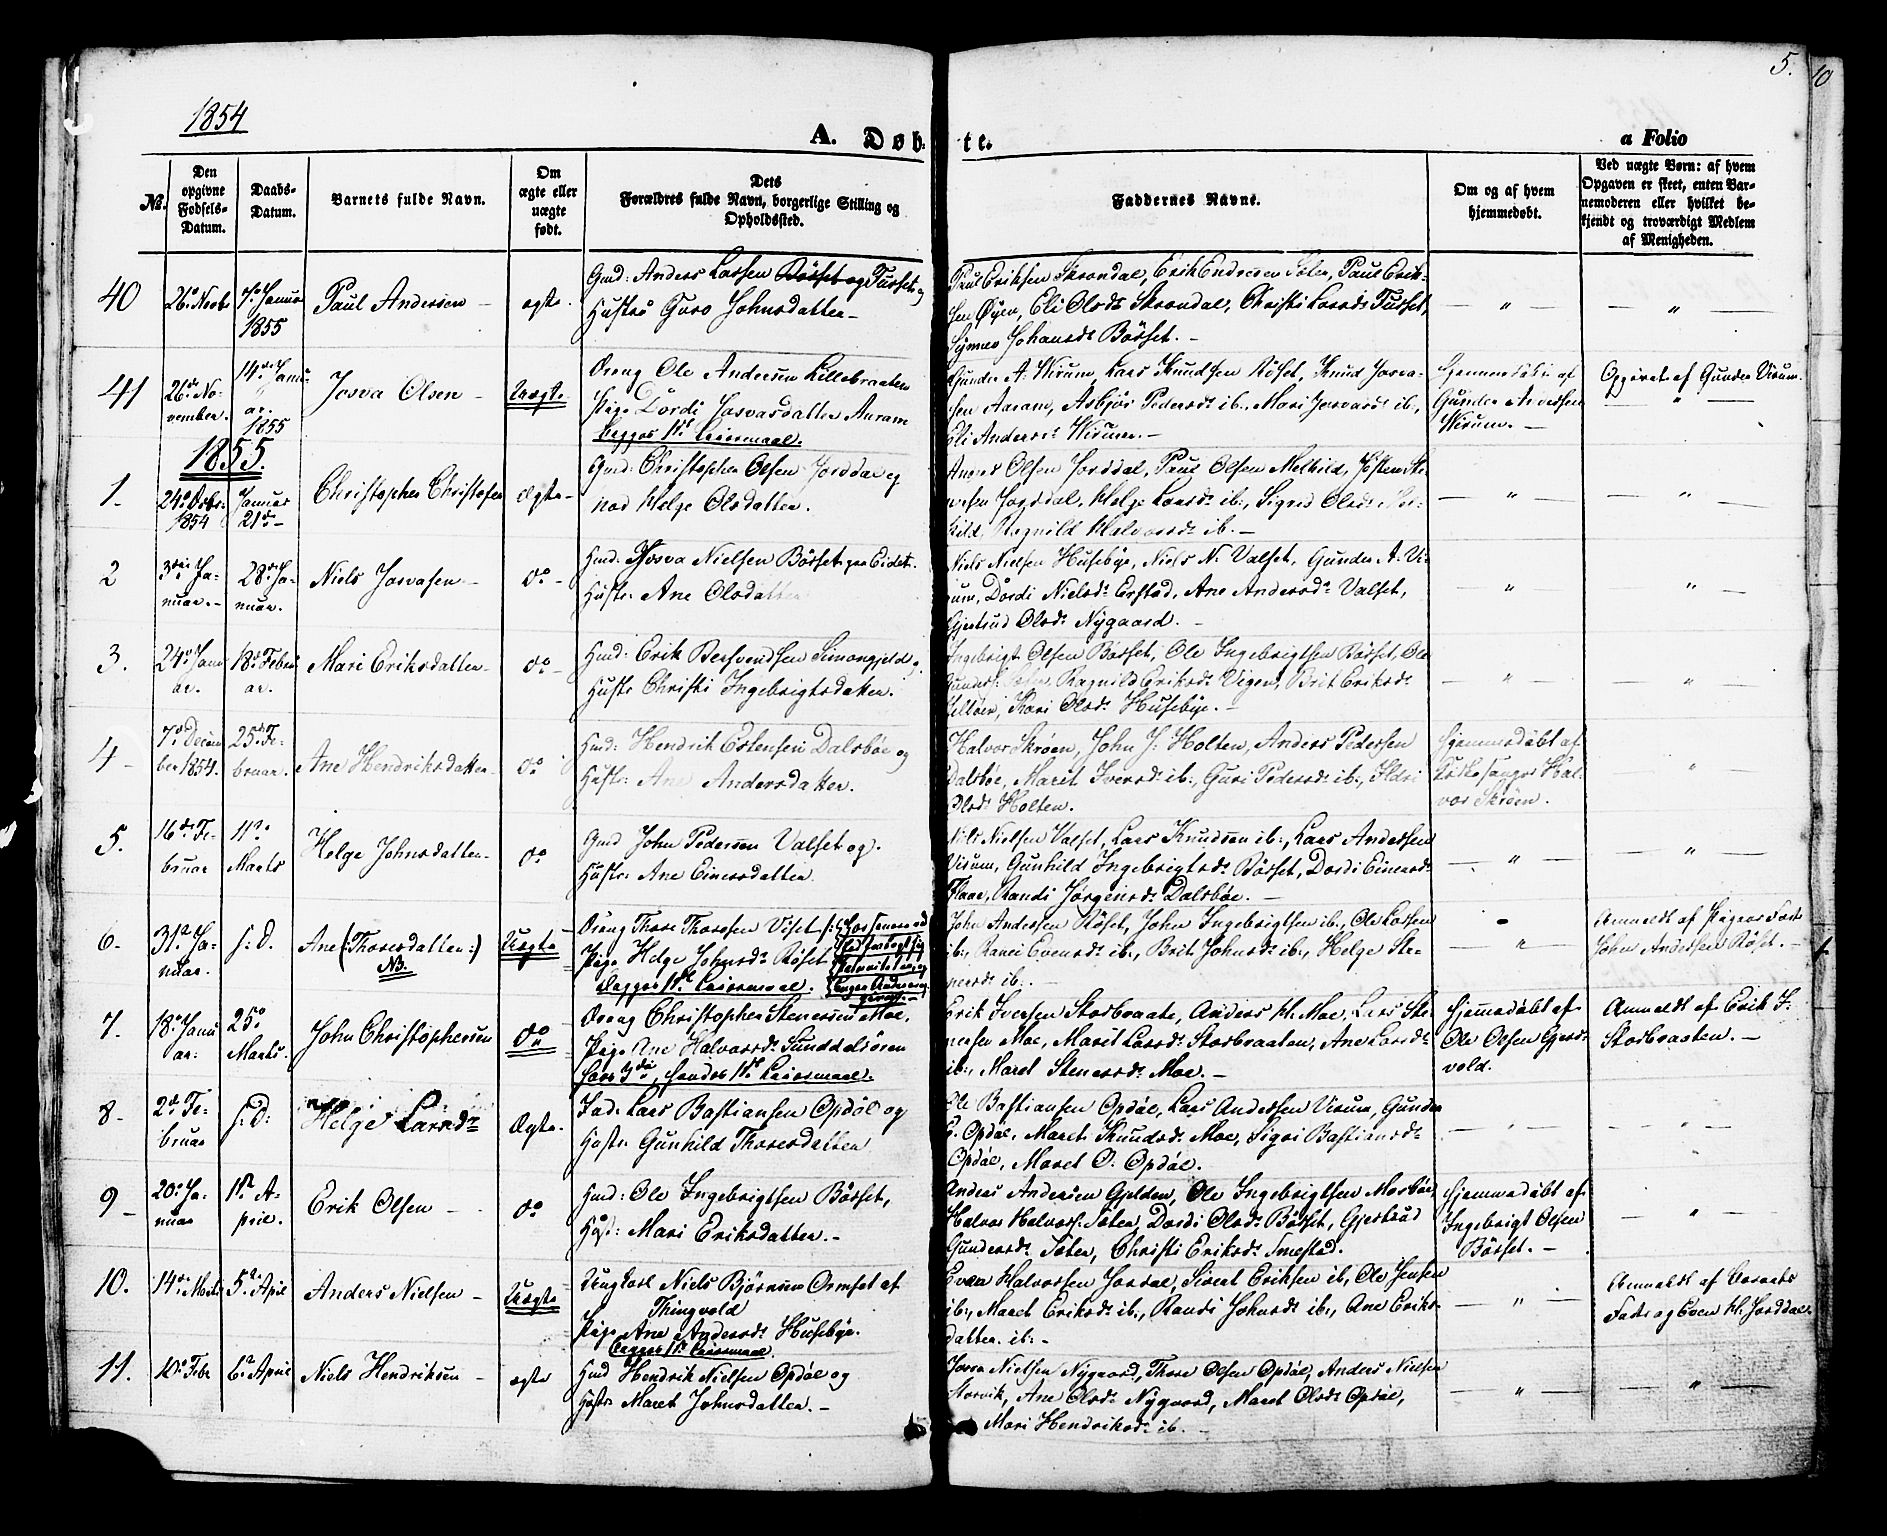 1854
5.
10
A. Døb-
te.
a Folio
No.
Den opgivne Fødsels-Datum.
Daabs-Datum.
Barnets fulde Navn.
Om ægte eller uægte født.
Dets Forældres fulde Navn, borgerlige Stilling og Opholdssted.
Faddernes Navne.
Om og af hvem hjemmedøbt.
Ved uægte Børn: af hvem Opgaven er skeet, enten Barnemoderen eller hvilket bekjendt og troværdigt Medlem af Menigheden.
40
7de Januar
1855
Paul Andersen –
ægte.
Gmd: Anders Larsen Börset og Furset og
Hustrů Guro Johnsdatter –
Paul Eriksen Skrondal, Erik Endresen Sæter, Paul Erik-
sen Öyen, Eli Olsdr Skrondal, Christi Larsdr Furset,
Johansdr Börset. –
41
26de No-
vember.
14de Janu-
ar.
1855
Josva Olsen –
Uægte
Dreng Ole Andersen Lillebraaten
Pige Dordi Josvasdatter Aaram
begges 1ste Leiermaal.
Gunder A. Wirum, Lars Knudsen Röset, Knud Josva-
sen Aaram, Asbjör Pedersdr ib:, Mari Josvasdr ib:,
Eli Andersdr Wirum. –
Hjemmedöbt af
Gunder Andersen
Wirum. –
Opgivet af Gunder Virum.
1855.
1.
24de Octbr:
1854
Januar
21de –
Christopher Christofersen
Ægte –
Gmd: Christopher Olsen Jorddal og
Helge Olsdatter.
Anders Olsen Jorddal, Paul Olsen Melhild, Josten Ste-
nersen Jorddal, Helge Larsdr ib:, Sigrid Olsdr Mel-
hild, Ragnild Halvorsdr ib. –
2
3die Ja-
nuar. –
28de Ja-
nuar.
Niels Josvasen –
do –
Hmd: Josva Nielsen Börset paa Eidet.
Hustr: Ane Olsdatter
Niels Nielsen Husebye, Niels N. Valset, Gunder A. Vi-
rum, Dordi Nielsdr Erstad, Ane Andersdr Valset,
Gjertrud Olsdr Nygaard. –
3.
24de Janu-
ar.
18de Febru-
ar.
Mari Eriksdatter –
do –
Hmd: Erik Bersvendsen Simongjeld og
Hustr Christi Ingebrigtsdatter.
Ingebrigt Olsen Börset, Ole Ingebrigtsen Börset, Ole
Gunders. Sæter, Ragnild Eriksdr Vegen, Brit Eriksdr
Kari Olsdr Husebye. –
4 –
7de Decem-
ber 1854.
25de Fe-
bruar.
Ane Hendriksdatter
do
Hmd: Hendrik Estensen Dalsböe og
Hustr: Ane Andersdatter.
Halvor Skröen, John J. Holten, Anders Pedersen
Dalsböe, Maret Iversdr ib:, Guri Pedersdr ib:, Ildri
Olsdr Holten.
Hjemmedöbt af
Kirkesanger Hal-
vor Skröen.
5.
16de Fe-
bruar
11te
Marts
Helge Johnsdatter –
do
Gmd John Pedersen Valset og.
Hustr: Ane Einersdatter
Nils Nielsen Valset, Lars Knudsen ib:, Lars Andersen
Virum, Gunhild Ingebrigtsdr Börset, Dordi Einersdr
Flaae, Randi Jörgensdr Dalsböe. –
6.
31te Ja-
nuar.
s: D.
Ane (: Thoresdatter :)
NB.
Uægte
Dreng Thore Thoresen Viset
Pige Helge Johnsdr Röset
Begges 1ste Leiermaal.
John Andersen Röset, John Ingebrigtsen ib:, Ole Larsen
ib:, Marit Evensdr ib:, Brit Johnsdr ib:, Helge Ste-
nersdr ib: –
Anmeldt af Pigens Fader
John Andersen Röset. –
7.
18de Janu-
ar:
25de
Marts.
John Christophersen
do
Dreng Christopher Stenersen Moe.
Pige Ane Halvorsdr Sunddalsören
hans 3die, hendes 1ste Leiermaal.
Erik Iversen Storbraate, Anders H. Moe, Lars Ste-
nersen Moe, Marit Larsdr Storbraaten, Ane Larsdr
ib:, Maret Stenersdr Moe. –
Hjemmedöbt af
Ole Olsen Gjers-
vold.
Anmeldt af Erik I.
Storbraaten. –
8 –
2de Fe-
bruar
s: D:
Helge Larsdr
Ægte.
Ind: Lars Bastiansen Opdöl og
Hustr Gunhild Thoresdatter
Ole Bastiansen Opdöl, Lars Andersen Virum, Gunder
Opdöl, Maret Knudsdr Moe, Sigri Bastiansdr
Opdöl, Maret O. Opdöl.
9 –
20de Ja-
nuar
1ste A-
pril.
Erik Olsen –
do
Hmd: Ole Ingebrigtsen Börset,
Hust: Mari Eriksdatter. –
Anders Andersen Gjelden, Ole Ingebrigtsen
Halvor Halvors. Sæter, Dordi Olsdr Börset, Gjertrud
Gundersdr Sæter, Christi Eriksdr Smestad.
Hjemmedöbt af
Ingebrigt Olsen
Börset. –
10.
14de Marts
5te April
Anders Nielsen –
Uægte
Ungkarl Niels Björnsen Ormset af
Thingvold
Pige Ane Andersdr Husebye.
begges 1ste Leiermaal.
Even Halvorsen Jordal, Sivert Eriksen ib, Ole Jensen
ib:, Maret Eriksdr ib:, Randi Johnsdr ib:, Ane Eriks-
datter ib: –
Anmeldt af Barnets
Fader og Even H. Jorddal.
11.
10de Febr
6te April
Niels Hendriksen –
ægte
Hmd Hendrik Nielsen Opdöl og
Hustr: Maret Johnsdatter. –
Nielsen Nygaard, Thore Olsen Opdöl, Anders Nielsen
Storvik, Ane Olsdr Nygaard, Maret Olsdr Opdöl,
Mari Hendriksdr ib. –